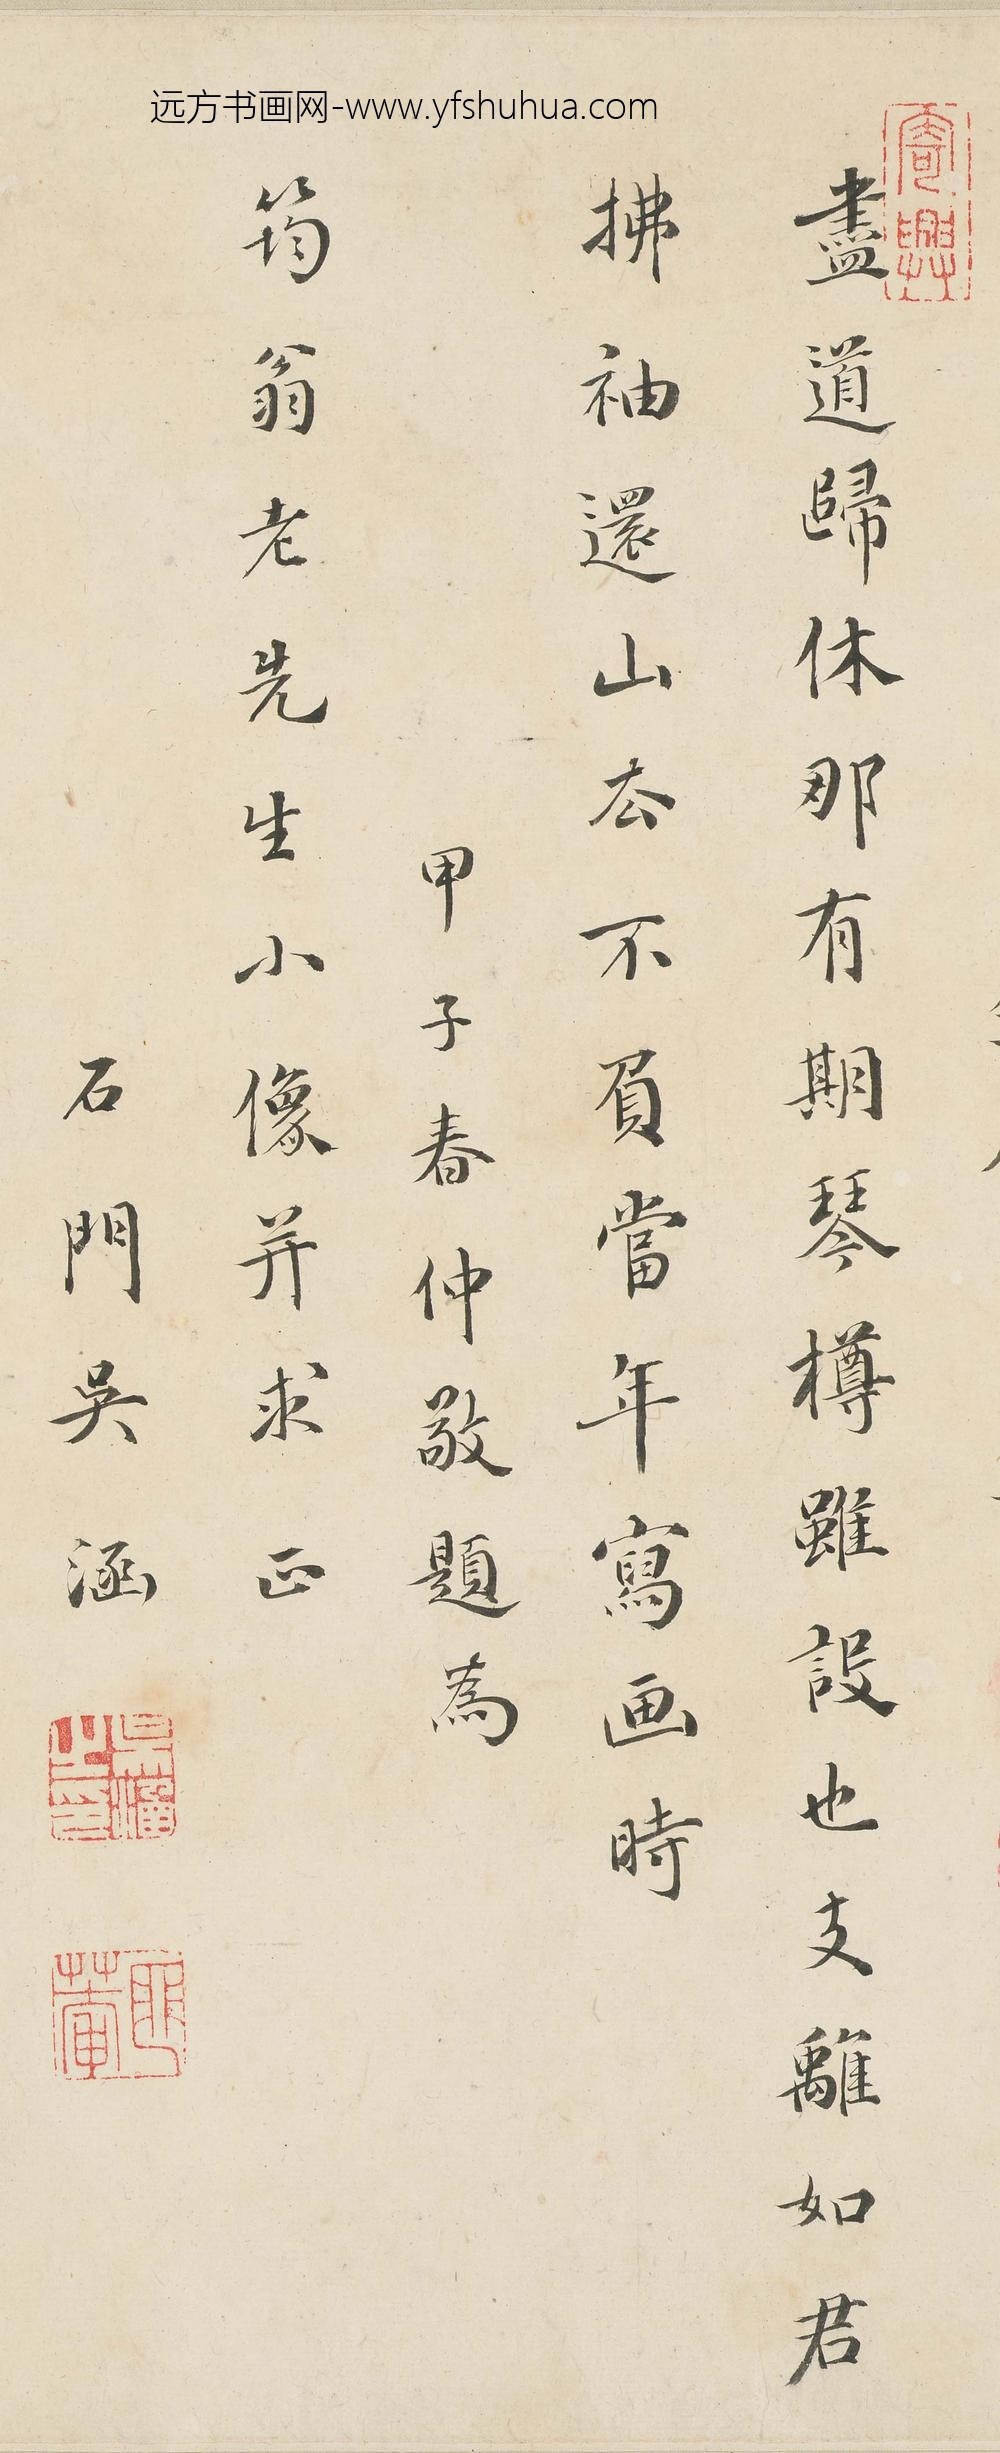 远方书画网-www.yfshuhua.com
盡道歸休那有期琴樽雖設也支離如君
拂袖還山去不負當年寫画時
甲子春仲敬題為
筠翁老先生小像并求正
石門吳涵
寄興
吳涵之印